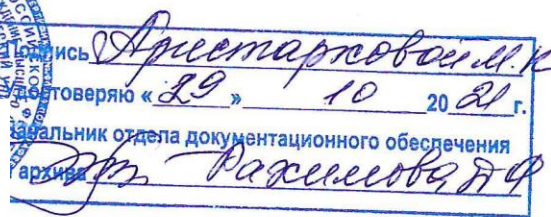 Подпись Аристарховой М.К
удостоверяю «29» 10 2021 г.
Начальник отдела документационного обеспечения
и архива Рахимова Д Ф